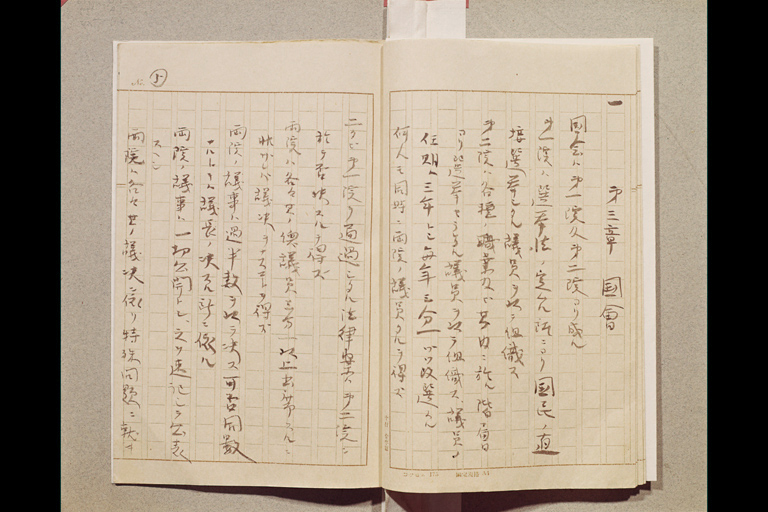 第三章 國會
国会ハ第一院及第二院ヨリ成ル
第一院ハ選挙法ノ定ムル所ニヨリ国民ノ直
接選挙シタル議員ヲ以テ組織ス
第二院ハ各種ノ職業及ビ其ノ中ニ於ル階層
ヨリ選挙セラレタル議員ヲ以テ組織ス、議員ノ
任期ハ三年トシ毎年三分一ヅツ改選ス
何人モ同時ニ両院ノ議員タルヲ得ズ
二タビ第一院ヲ通過シタル法律案ハ第二院ニ
於テ否決スルヲ得ズ
両院ハ各々其ノ總議員三分一以上出席スルニ
非ザレバ議決ヲナスコトヲ得ズ
両院ノ議事ハ過半数ヲ以テ決ス可否同数
ナルトキハ議長ノ決スル所ニ依ル
両院ノ議事ハ一切公開トシ之ヲ速記シテ公表
スベシ
両院ハ各々其ノ議決ニ依リ特殊問題ニ就テ